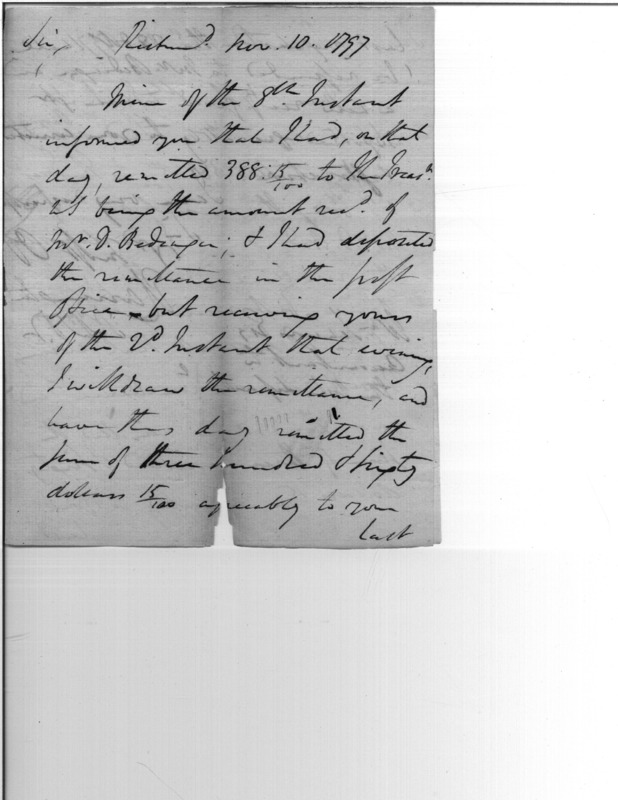 Sir, Richmd. Nov. 10. 1797
Mine of the 8th. Instant
informed you that I had, on that
day, remitted 388.15/100 to the Treasr.
as being the amount recd. of
Mr. D. Bedinger; & I had deposited
the remittance in the post
office, but receiving yours
of the 2d. Instant that evening,
I withdraw the remittance, and
have this day remitted the
sum of three hundred & sixty
dollars 15/100 agreeably to your
last